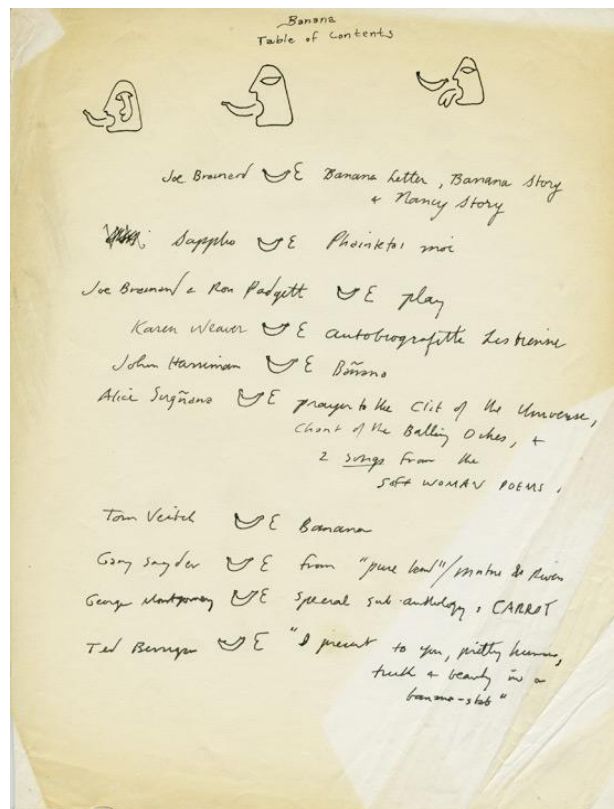 Banana
Table of Contents
Joe Brainard Banana Letter, Banana Story
+ Nancy Story
Sappho Phainetai moi
Joe Brainard & Ron Padgett play
Karen Weaver autobiografitte Lesbienne
John Harriman Bañano
Alice prayer to the Clit of the Universe,
Chant of the Balling Dikes, +
2 Songs from the
Soft WOMAN POEMS.
Tom Veitch Banana
Gary Snyder from "pure land"/
George Montgomery special sub-anthology, CARROT
Ted Berrigan "I present to you, pretty
truth & beauty in a
banana-